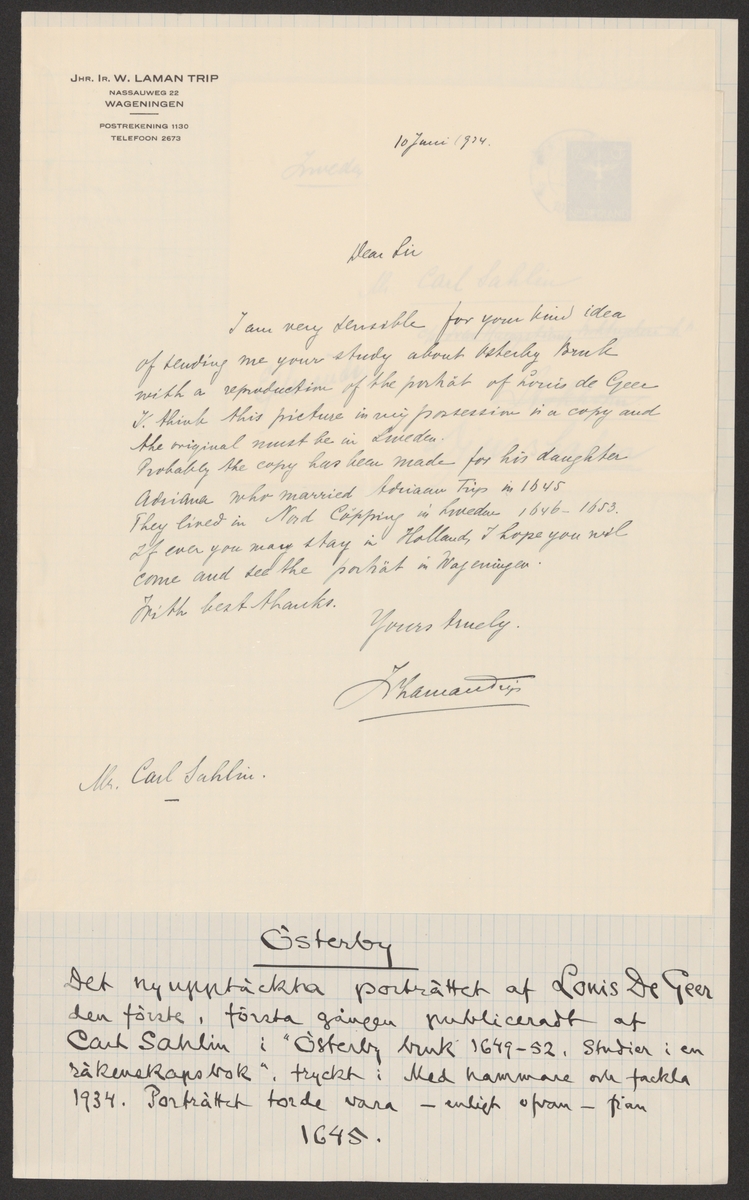 JHR. IR. W. LAMAN TRIP
NASSAUWEG 22
WAGENINGEN
POSTREKENING 1130
TELEFOON 2673
10 Juni 1934.
Sweden
Carl Sahlin
Dear Sir
I am very sensible for your kind idea
of sending me your study about Osterby Bruk
with a reproduction of the porträt of Louis de Geer
I think this picture in my possession is a copy and
the original must be in Sweden.
Probably the copy has been made for his daughter
Adriana who married Adriaan Trip in 1645
They lived in Nord Cöpping in Sweden 1646-1653.
If ever you may stay in Holland, I hope you will
come and see the porträt in Wageningen.
With best thanks.
Yours truely.
WLamanTrip
Mr. Carl Sahlin.
Österby
Det nyupptäckta porträttet af Louis De Geer
den förste, första gången publiceradt af
Carl Sahlin i "Österby bruk 1649-52. Studier i en
räkenskapsbok", tryckt i Med hammare och fackla
1934. Porträttet torde vara - enligt ofvan - från
1645.